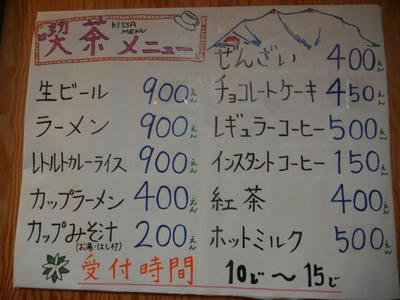 喫茶メニュー
KISSA MENU
生ビール 900えん
ラーメン 900えん
レトルトカレーライス 900えん
カップラーメン 400えん
カップみそ汁 200えん
(お湯・はし付)
ぜんざい 400えん
チョコレートケーキ 450えん
レギュラーコーヒー 500えん
インスタントコーヒー 150えん
紅茶 400えん
ホットミルク 500えん
受付時間 10じ〜15じ